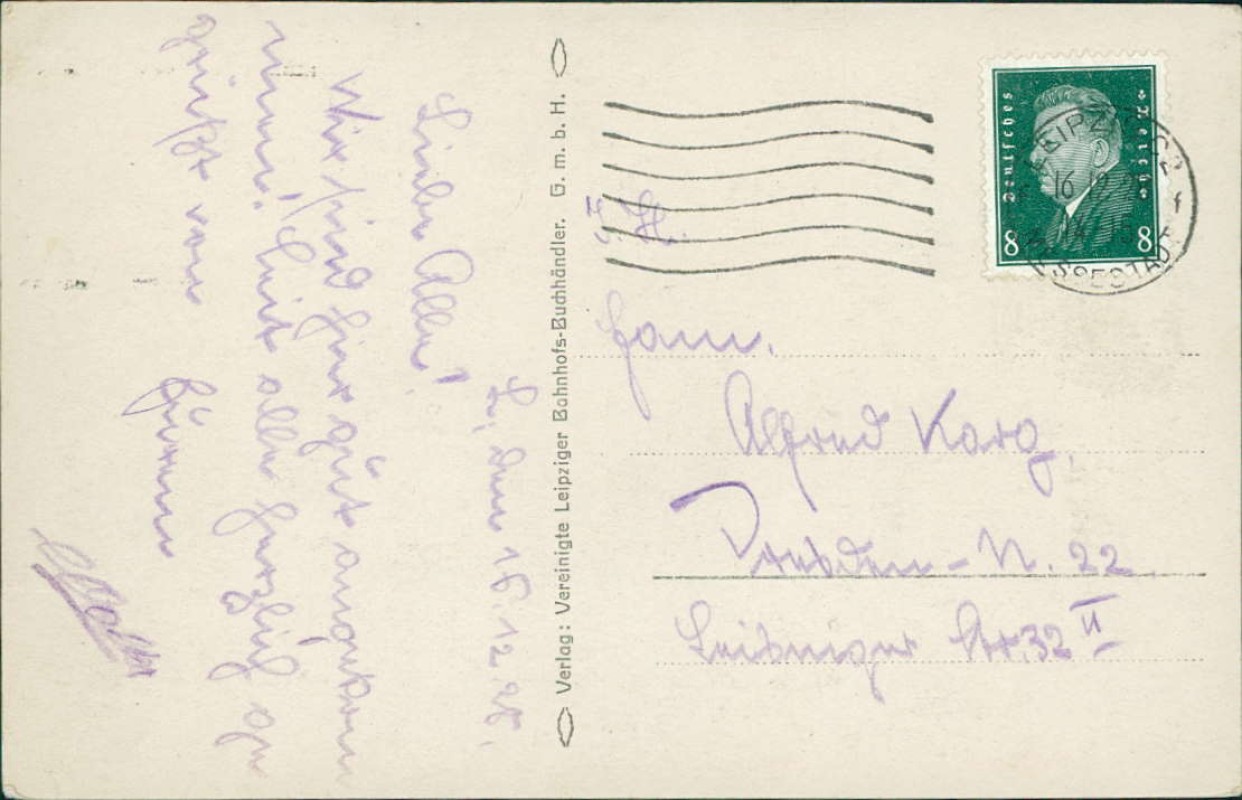 L., den 16.12.28.
Liebe Alle!
Wir sind hier gut angekom
men. Seid alle herzlich ge
grüßt von
Verlag: Vereinigte Leipziger Bahnhofs-Buchhändler. G. m. b. H.
Deutsches Reich
8 8
LEIPZIG C2
16
MESSESTADT
Fam.
Alfred Karg,
Dresden-N. 22
Leisniger Str. 32 II